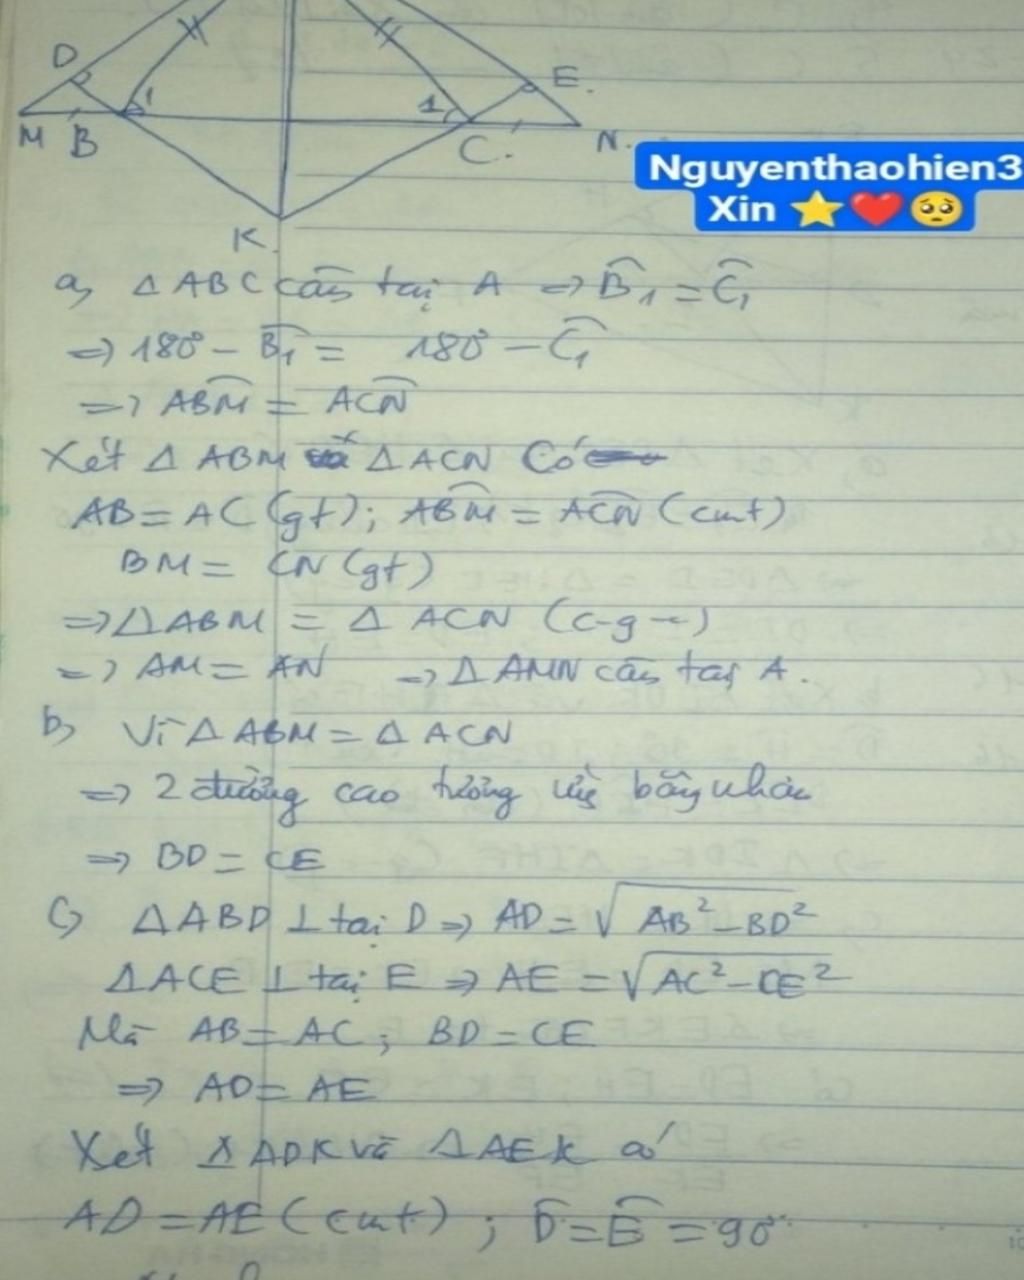 D
E.
1
1
M B
C.
N.
Nguyenthaohien3
Xin ⭐❤️🥺
K
a, △ABC cân tại A => B̂₁ = Ĉ₁
=> 180° - B̂₁ = 180° - Ĉ₁
=> ABM̂ = ACN̂
Xét △ ABM và △ ACN Có
AB = AC (gt); ABM̂ = ACN̂ (cmt)
BM = CN (gt)
=> △ABM = △ ACN (c-g-c)
=> AM = AN => △ AMN cân tại A.
b, Vì △ ABM = △ ACN
=> 2 đường cao tương ứng bằng nhau
=> BD = CE
c, △ABD ⊥ tại D => AD = √AB² - BD²
△ACE ⊥ tại E => AE = √AC² - CE²
Mà AB = AC; BD = CE
=> AD = AE
Xét △ ADK và △ AEK có
AD = AE (cmt); D̂ = Ê = 90°